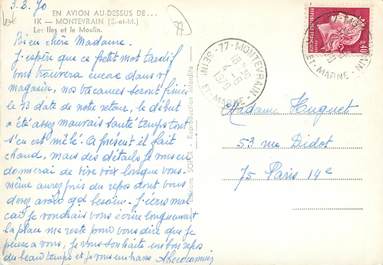 3.8.70
EN AVION AU-DESSUS DE...
IK — MONTEVRAIN (S.-et-M.)
Les Iles et le Moulin.
Bien chère Madame.
J'espère que ce petit mot tardif
vous trouvera encore dans v/
magasin, nos vacances seront finies
le 23 date de notre retour, le début
a été assez mauvais santé temps tout
s'en est mêlé. A présent il fait
chaud, mais des détails je vous en
donnerai de vive voix lorsque vous
même aurez pris du repos dont vous
devez avoir grd besoin. J'écris mal
car je voudrais vous écrire longuement
la place me reste pour vous dire que je
pense à vous, je vous souhaite un bon repos
du beau temps et je vous embrasse
77 - MONTEVRAIN
SEINE-ET-MARNE
18H
4-8
1970
77 - MONTEVRAIN
SEINE-ET-MARNE
0,40
Madame Huguet
53 rue Didot
75 Paris 14e